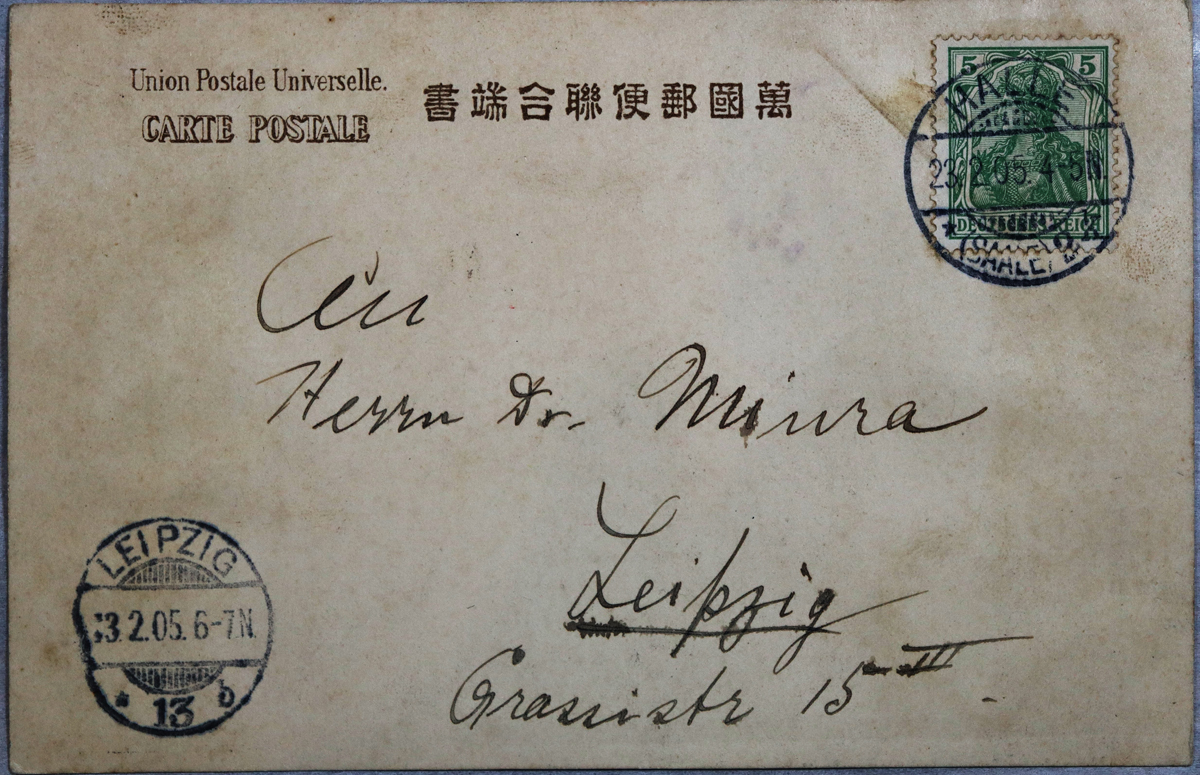 Union Postale Universelle.
CARTE POSTALE
書端合聯便郵國萬
5 5
DEUTSCHES REICH
HALLE
23.2.05.4-5N.
* (SAALE) 2 *
An
Herrn Dr. Miura
Leipzig
Grassistr 15 III
LEIPZIG
23.2.05.6-7N.
* 13 b